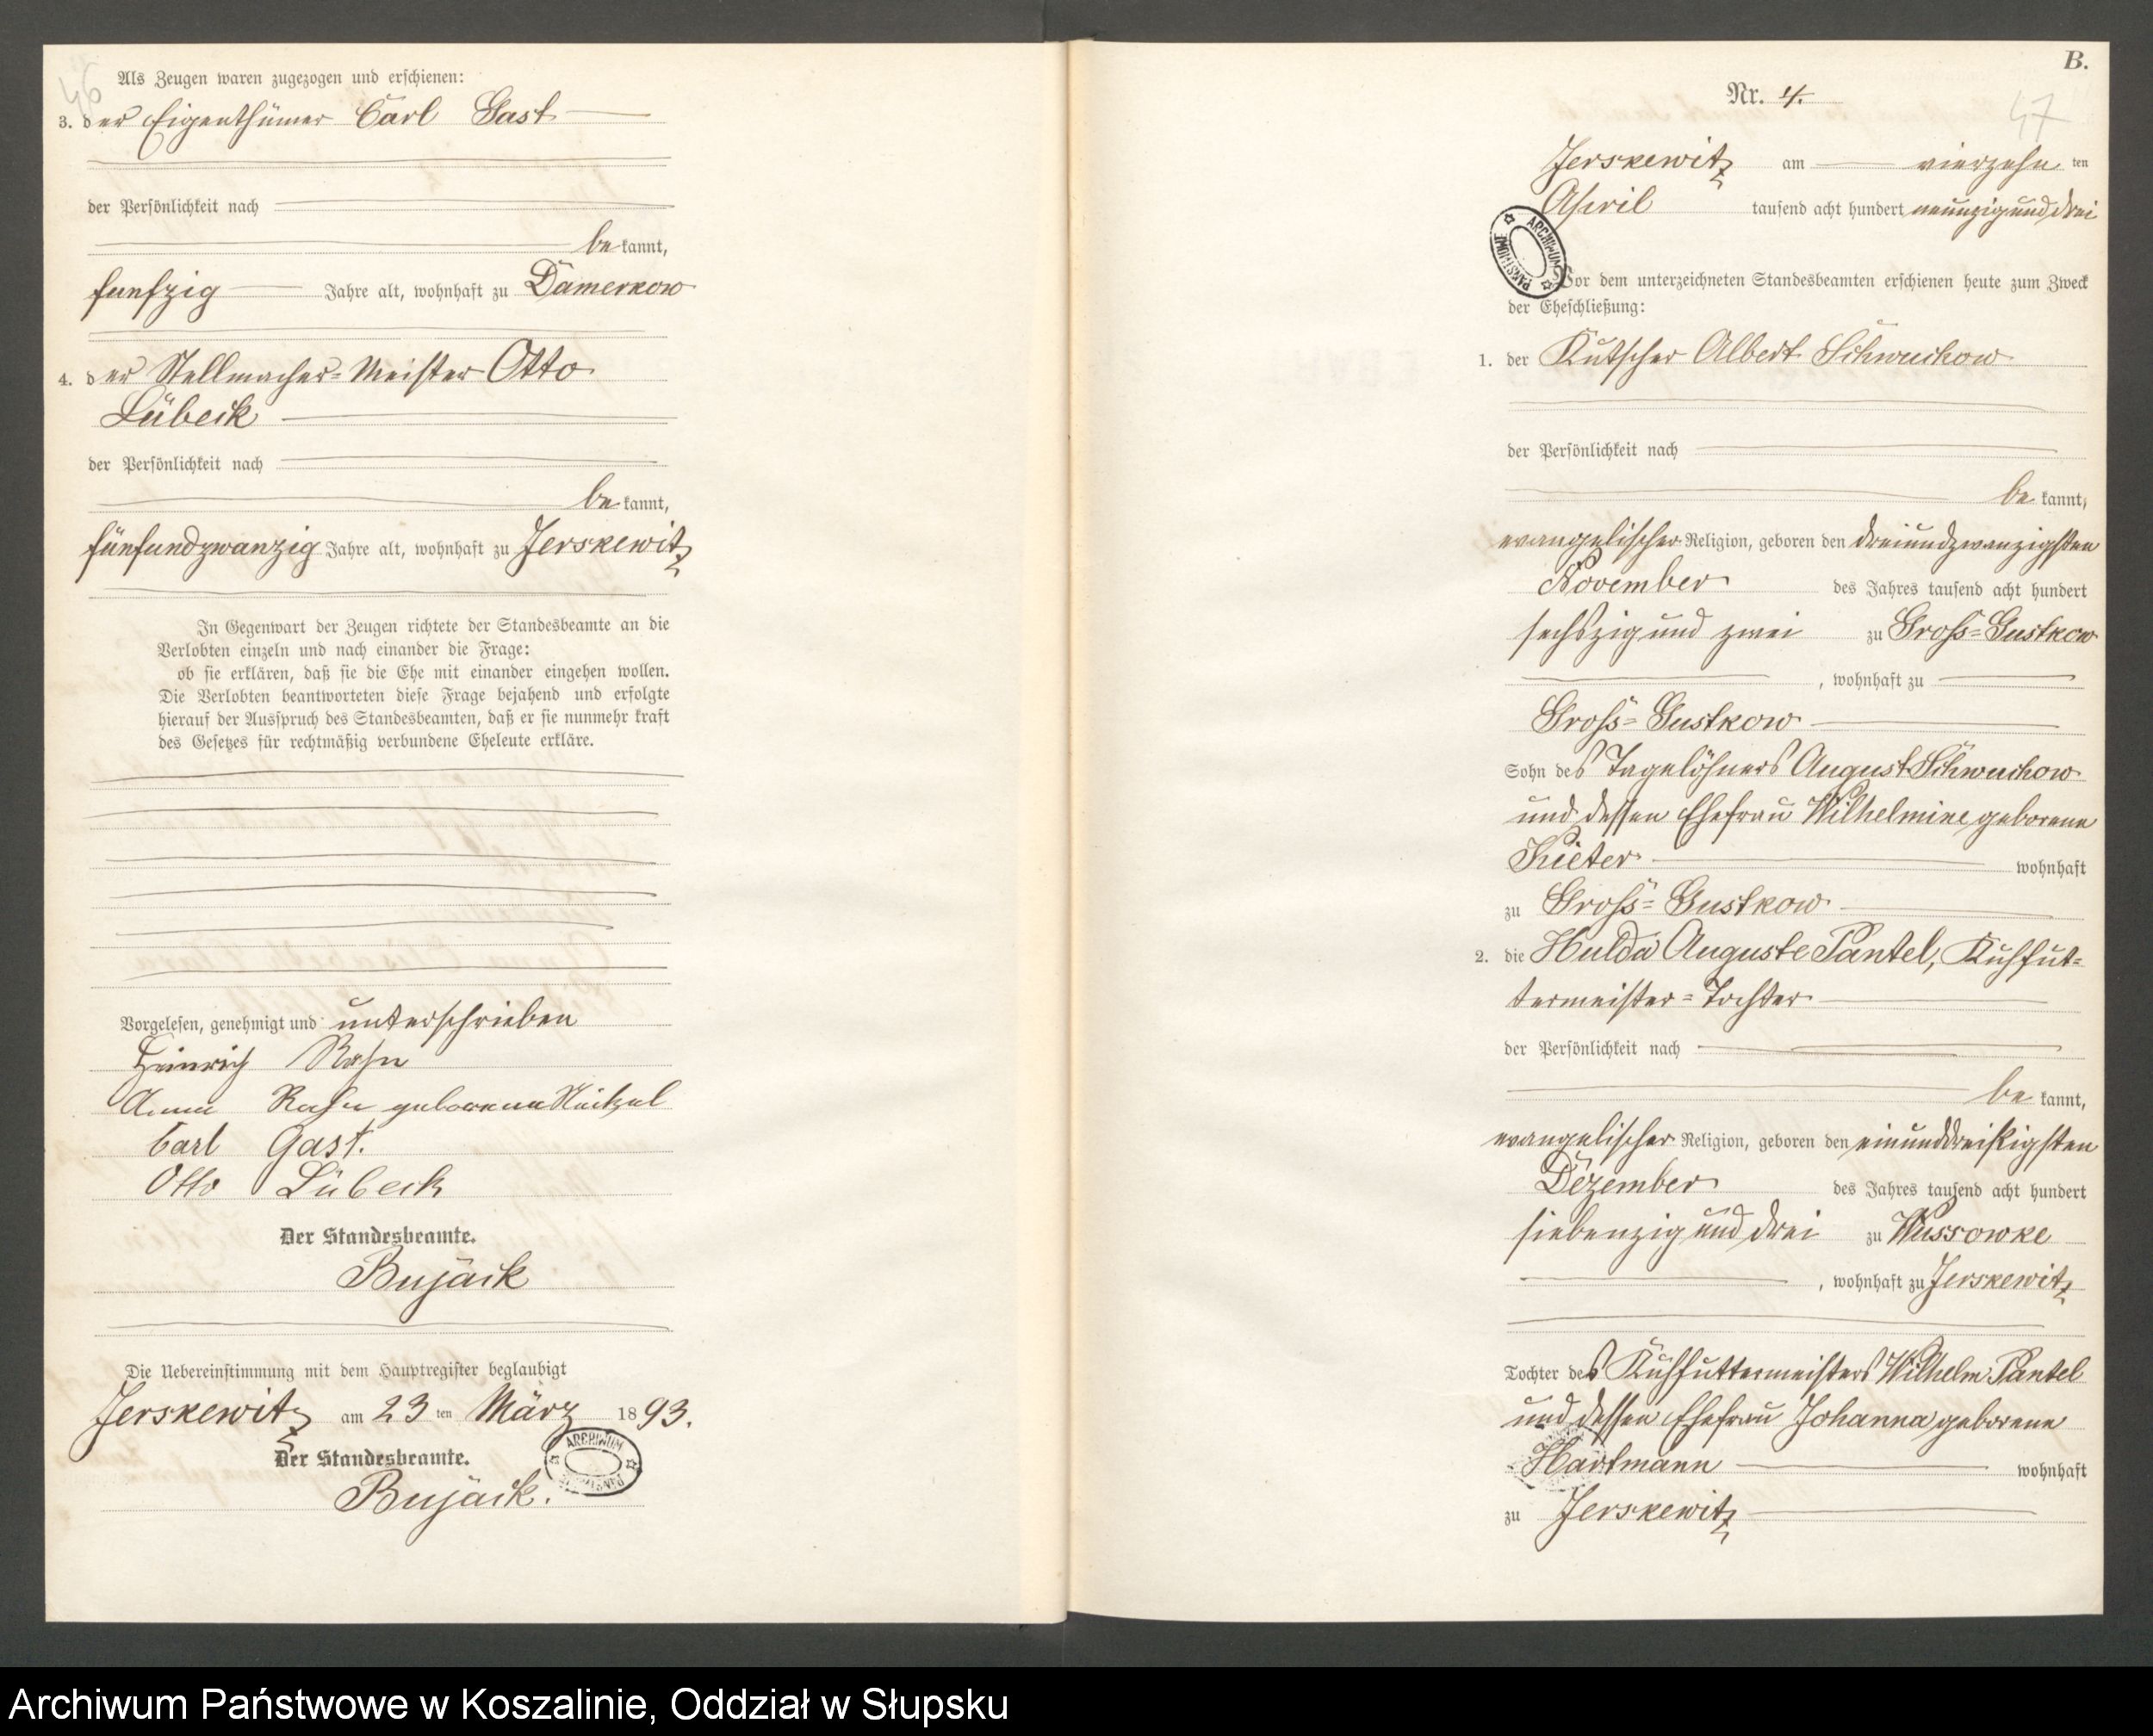 46
Als Zeugen waren zugezogen und erschienen:
3. der Eigenthümer Carl Gast
der Persönlichkeit nach
be kannt,
funfzig Jahre alt, wohnhaft zu Damerkow
4. der Stellmacher-Meister Otto
Lübeck
der Persönlichkeit nach
be kannt,
fünfundzwanzig Jahre alt, wohnhaft zu Jerskewitz
In Gegenwart der Zeugen richtete der Standesbeamte an die
Verlobten einzeln und nach einander die Frage:
ob sie erklären, daß sie die Ehe mit einander eingehen wollen.
Die Verlobten beantworteten diese Frage bejahend und erfolgte
hierauf der Ausspruch des Standesbeamten, daß er sie nunmehr kraft
des Gesetzes für rechtmäßig verbundene Eheleute erkläre.
Vorgelesen, genehmigt und unterschrieben
Heinrich Rahn
Anna Rahn geborene
Carl Gast.
Otto Lübeck
Der Standesbeamte.
Bujack
Die Uebereinstimmung mit dem Hauptregister beglaubigt
Jerskewitz am 23 ten März 1893.
Der Standesbeamte.
Bujack.
ARCHIWUM PAŃSTWOWE
B.
Nr. 4.
47
Jerskewitz am vierzehn ten
April tausend acht hundert neunzig und drei
ARCHIWUM PAŃSTWOWE
Vor dem unterzeichneten Standesbeamten erschienen heute zum Zweck
der Eheschließung:
1. der Kutscher Albert Schwuchow
der Persönlichkeit nach
be kannt,
evangelischer Religion, geboren den dreiundzwanzigsten
November des Jahres tausend acht hundert
sechszig und zwei zu Gross-Gustkow
, wohnhaft zu
Gross-Gustkow
Sohn des Tagelöhners August Schwuchow
und dessen Ehefrau Wilhelmine geborene
wohnhaft
zu Gross-Gustkow
2. die Hulda Auguste Pantel, Kuhfut-
termeister-Tochter
der Persönlichkeit nach
be kannt,
evangelischer Religion, geboren den einunddreißigsten
Dezember des Jahres tausend acht hundert
siebenzig und drei zu Wussowke
, wohnhaft zu Jerskewitz
Tochter des Kuhfuttermeisters Wilhelm Pantel
und dessen Ehefrau Johanna geborene
Hartmann wohnhaft
zu Jerskewitz
Archiwum Państwowe w Koszalinie, Oddział w Słupsku